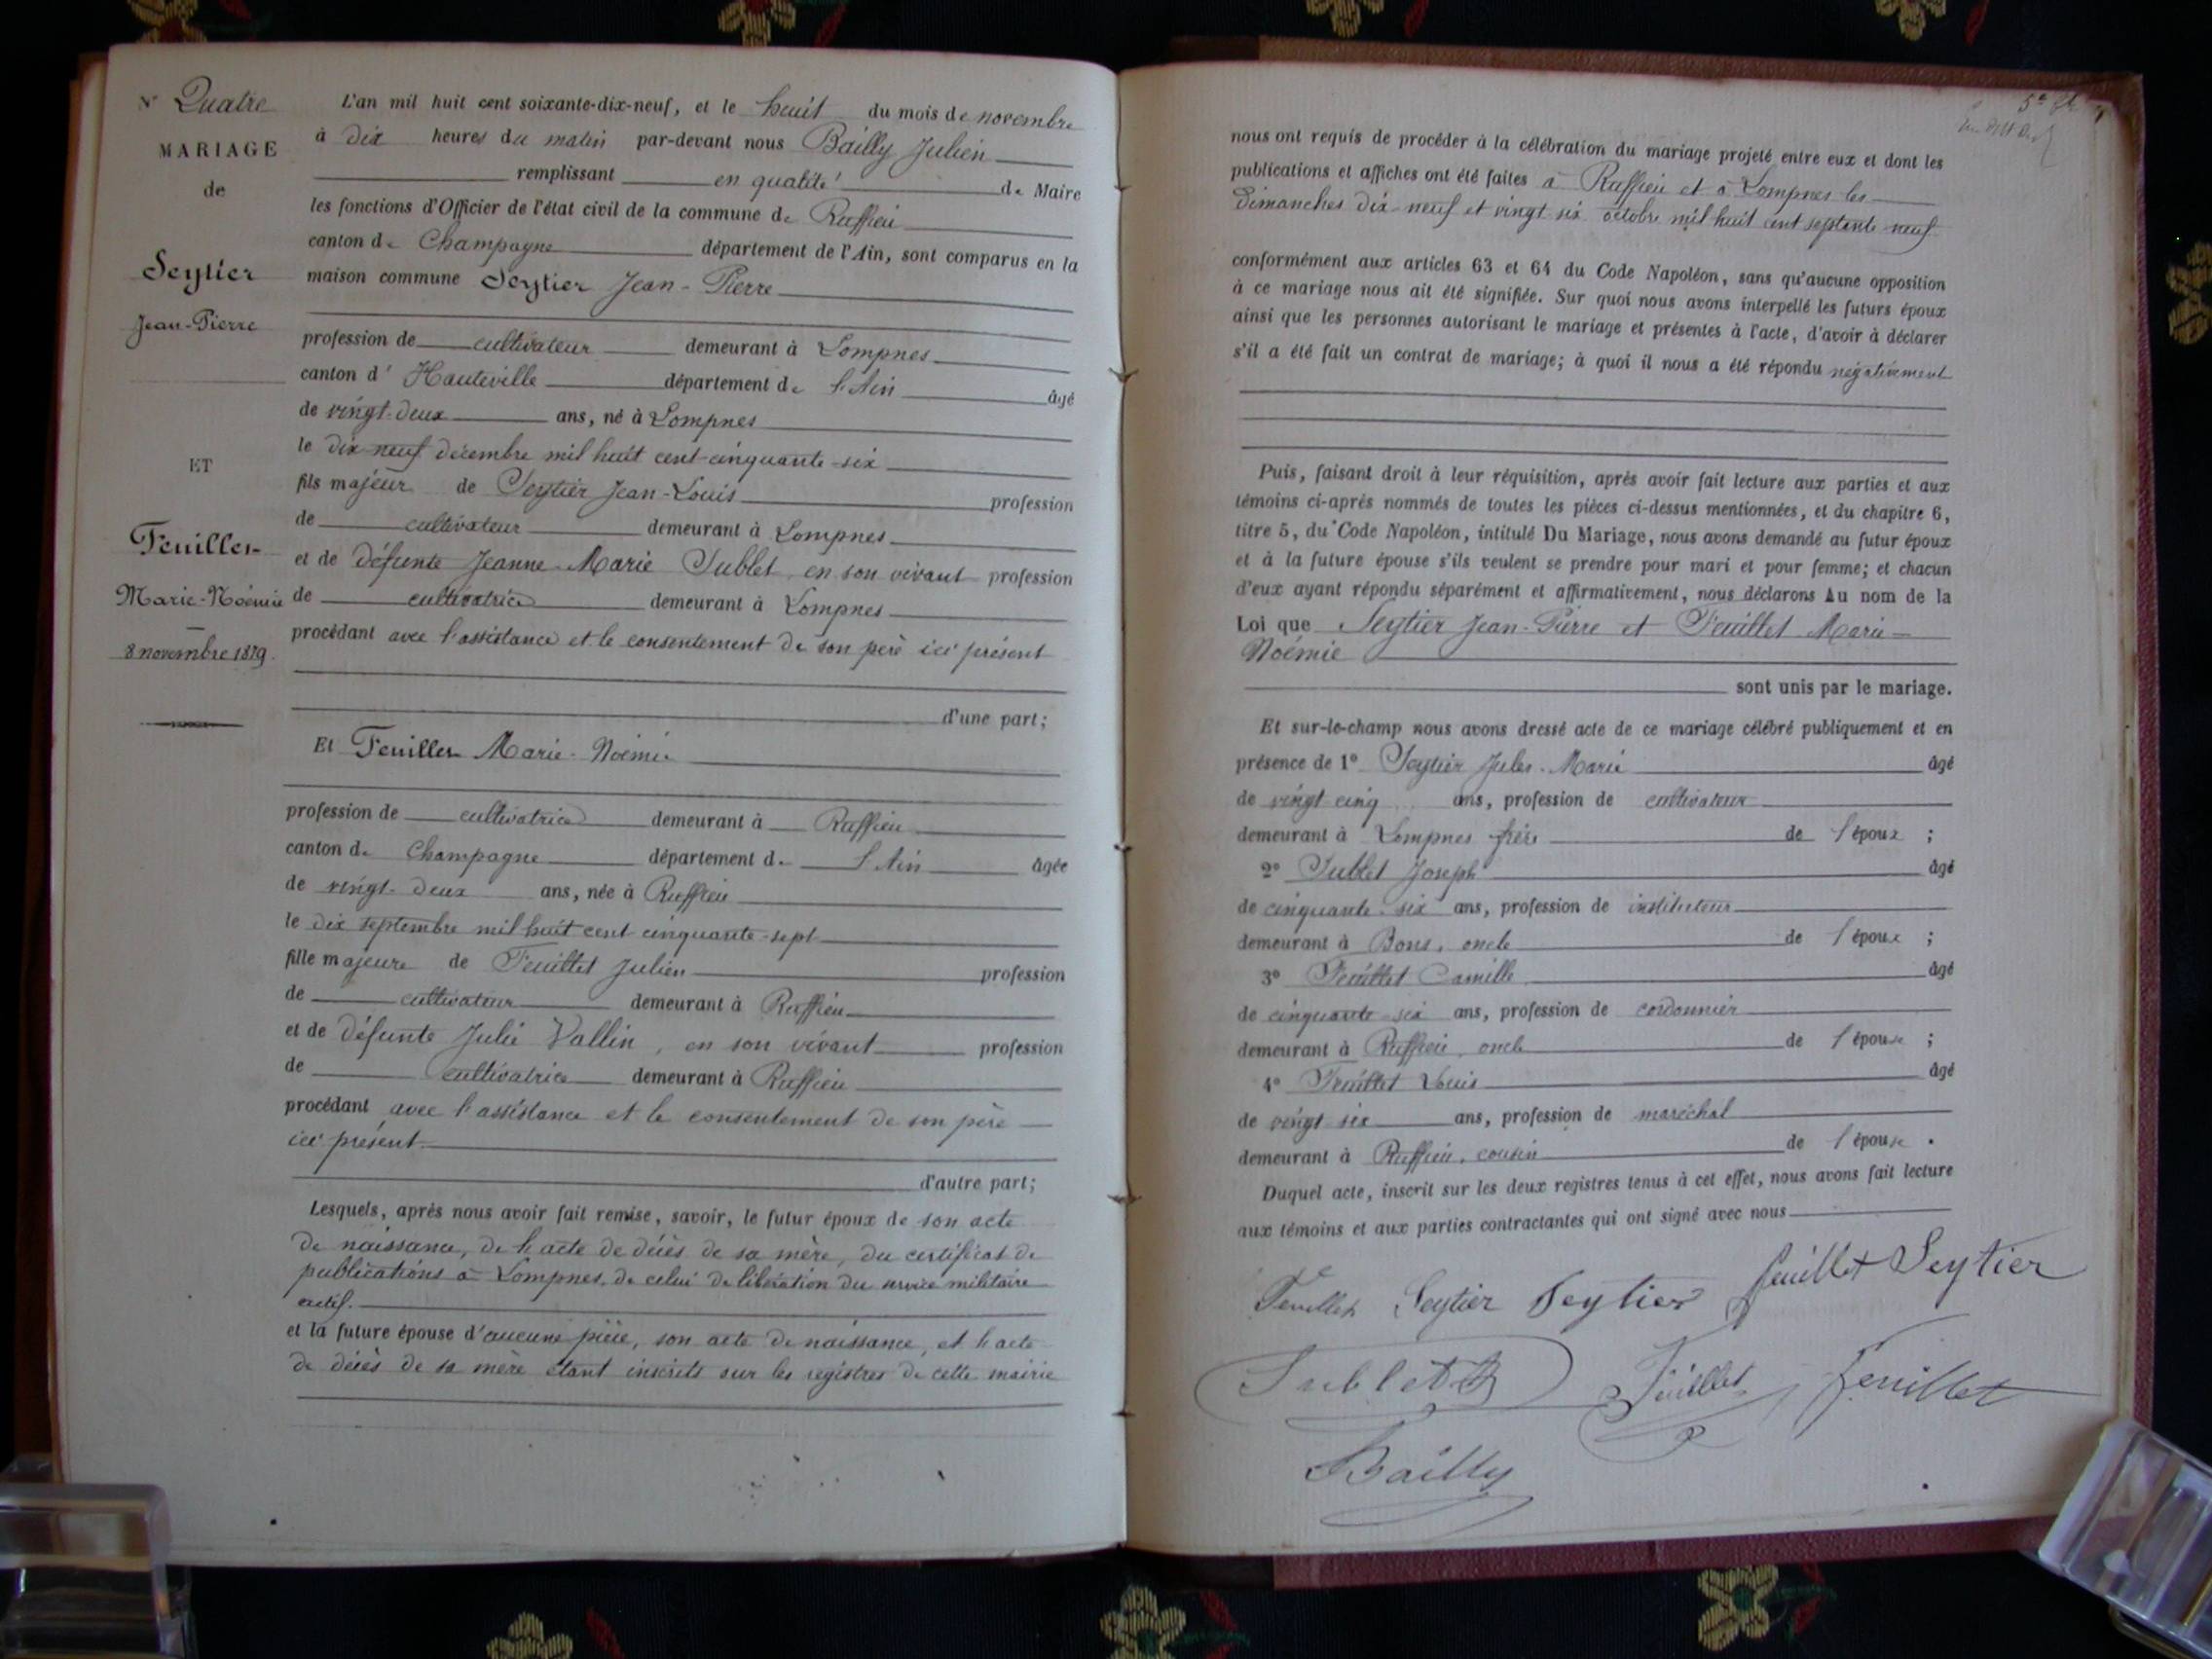 N° Quatre
MARIAGE
de
Seytier
Jean-Pierre
ET
Feuillet
Marie-Noémie
8 novembre 1879.
L'an mil huit cent soixante-dix-neuf, et le huit du mois de novembre
à dix heures du matin par-devant nous Bailly Julien
remplissant en qualité de Maire
les fonctions d'Officier de l'état civil de la commune de Ruffieu
canton de Champagne département de l'Ain, sont comparus en la
maison commune Seytier Jean-Pierre
profession de cultivateur demeurant à Lompnes
canton d'Hauteville département de l'Ain âgé
de vingt-deux ans, né à Lompnes
le dix-neuf décembre mil huit cent cinquante-six
fils majeur de Seytier Jean-Louis profession
de cultivateur demeurant à Lompnes
et de défunte Jeanne-Marie Sublet, en son vivant profession
de cultivatrice demeurant à Lompnes
procédant avec l'assistance et le consentement de son père ici présent
d'une part;
Et Feuillet Marie-Noémie
profession de cultivatrice demeurant à Ruffieu
canton de Champagne département de l'Ain âgée
de vingt-deux ans, née à Ruffieu
le dix septembre mil huit cent cinquante-sept
fille majeure de Feuillet Julien profession
de cultivateur demeurant à Ruffieu
et de défunte Julie Vallin, en son vivant profession
de cultivatrice demeurant à Ruffieu
procédant avec l'assistance et le consentement de son père
ici présent
d'autre part;
Lesquels, après nous avoir fait remise, savoir, le futur époux de son acte
de naissance, de l'acte de décès de sa mère, du certificat de
publications à Lompnes, de celui de libération du service militaire
actif.
et la future épouse d'aucune pièce, son acte de naissance, et l'acte
de décès de sa mère étant inscrits sur les registres de cette mairie
nous ont requis de procéder à la célébration du mariage projeté entre eux et dont les
publications et affiches ont été faites à Ruffieu et à Lompnes les
dimanches dix-neuf et vingt six octobre mil huit cent septante neuf
conformément aux articles 63 et 64 du Code Napoléon, sans qu'aucune opposition
à ce mariage nous ait été signifiée. Sur quoi nous avons interpellé les futurs époux
ainsi que les personnes autorisant le mariage et présentes à l'acte, d'avoir à déclarer
s'il a été fait un contrat de mariage; à quoi il nous a été répondu négativement
Puis, faisant droit à leur réquisition, après avoir fait lecture aux parties et aux
témoins ci-après nommés de toutes les pièces ci-dessus mentionnées, et du chapitre 6,
titre 5, du Code Napoléon, intitulé Du Mariage, nous avons demandé au futur époux
et à la future épouse s'ils veulent se prendre pour mari et pour femme; et chacun
d'eux ayant répondu séparément et affirmativement, nous déclarons Au nom de la
Loi que Seytier Jean-Pierre et Feuillet Marie-
Noémie
sont unis par le mariage.
Et sur-le-champ nous avons dressé acte de ce mariage célébré publiquement et en
présence de 1° Seytier Jules-Marie âgé
de vingt-cinq ans, profession de cultivateur
demeurant à Lompnes frère de l'époux ;
2° Sublet Joseph âgé
de cinquante-six ans, profession de instituteur
demeurant à Bons, oncle de l'époux ;
3° Feuillet Camille âgé
de cinquante-six ans, profession de cordonnier
demeurant à Ruffieu, oncle de l'épouse ;
4° Feuillet Louis âgé
de vingt six ans, profession de maréchal
demeurant à Ruffieu, cousin de l'épouse .
Duquel acte, inscrit sur les deux registres tenus à cet effet, nous avons fait lecture
aux témoins et aux parties contractantes qui ont signé avec nous
Feuillet Seytier Seytier feuillet Seytier
Sublet Feuillet Feuillet
Bailly